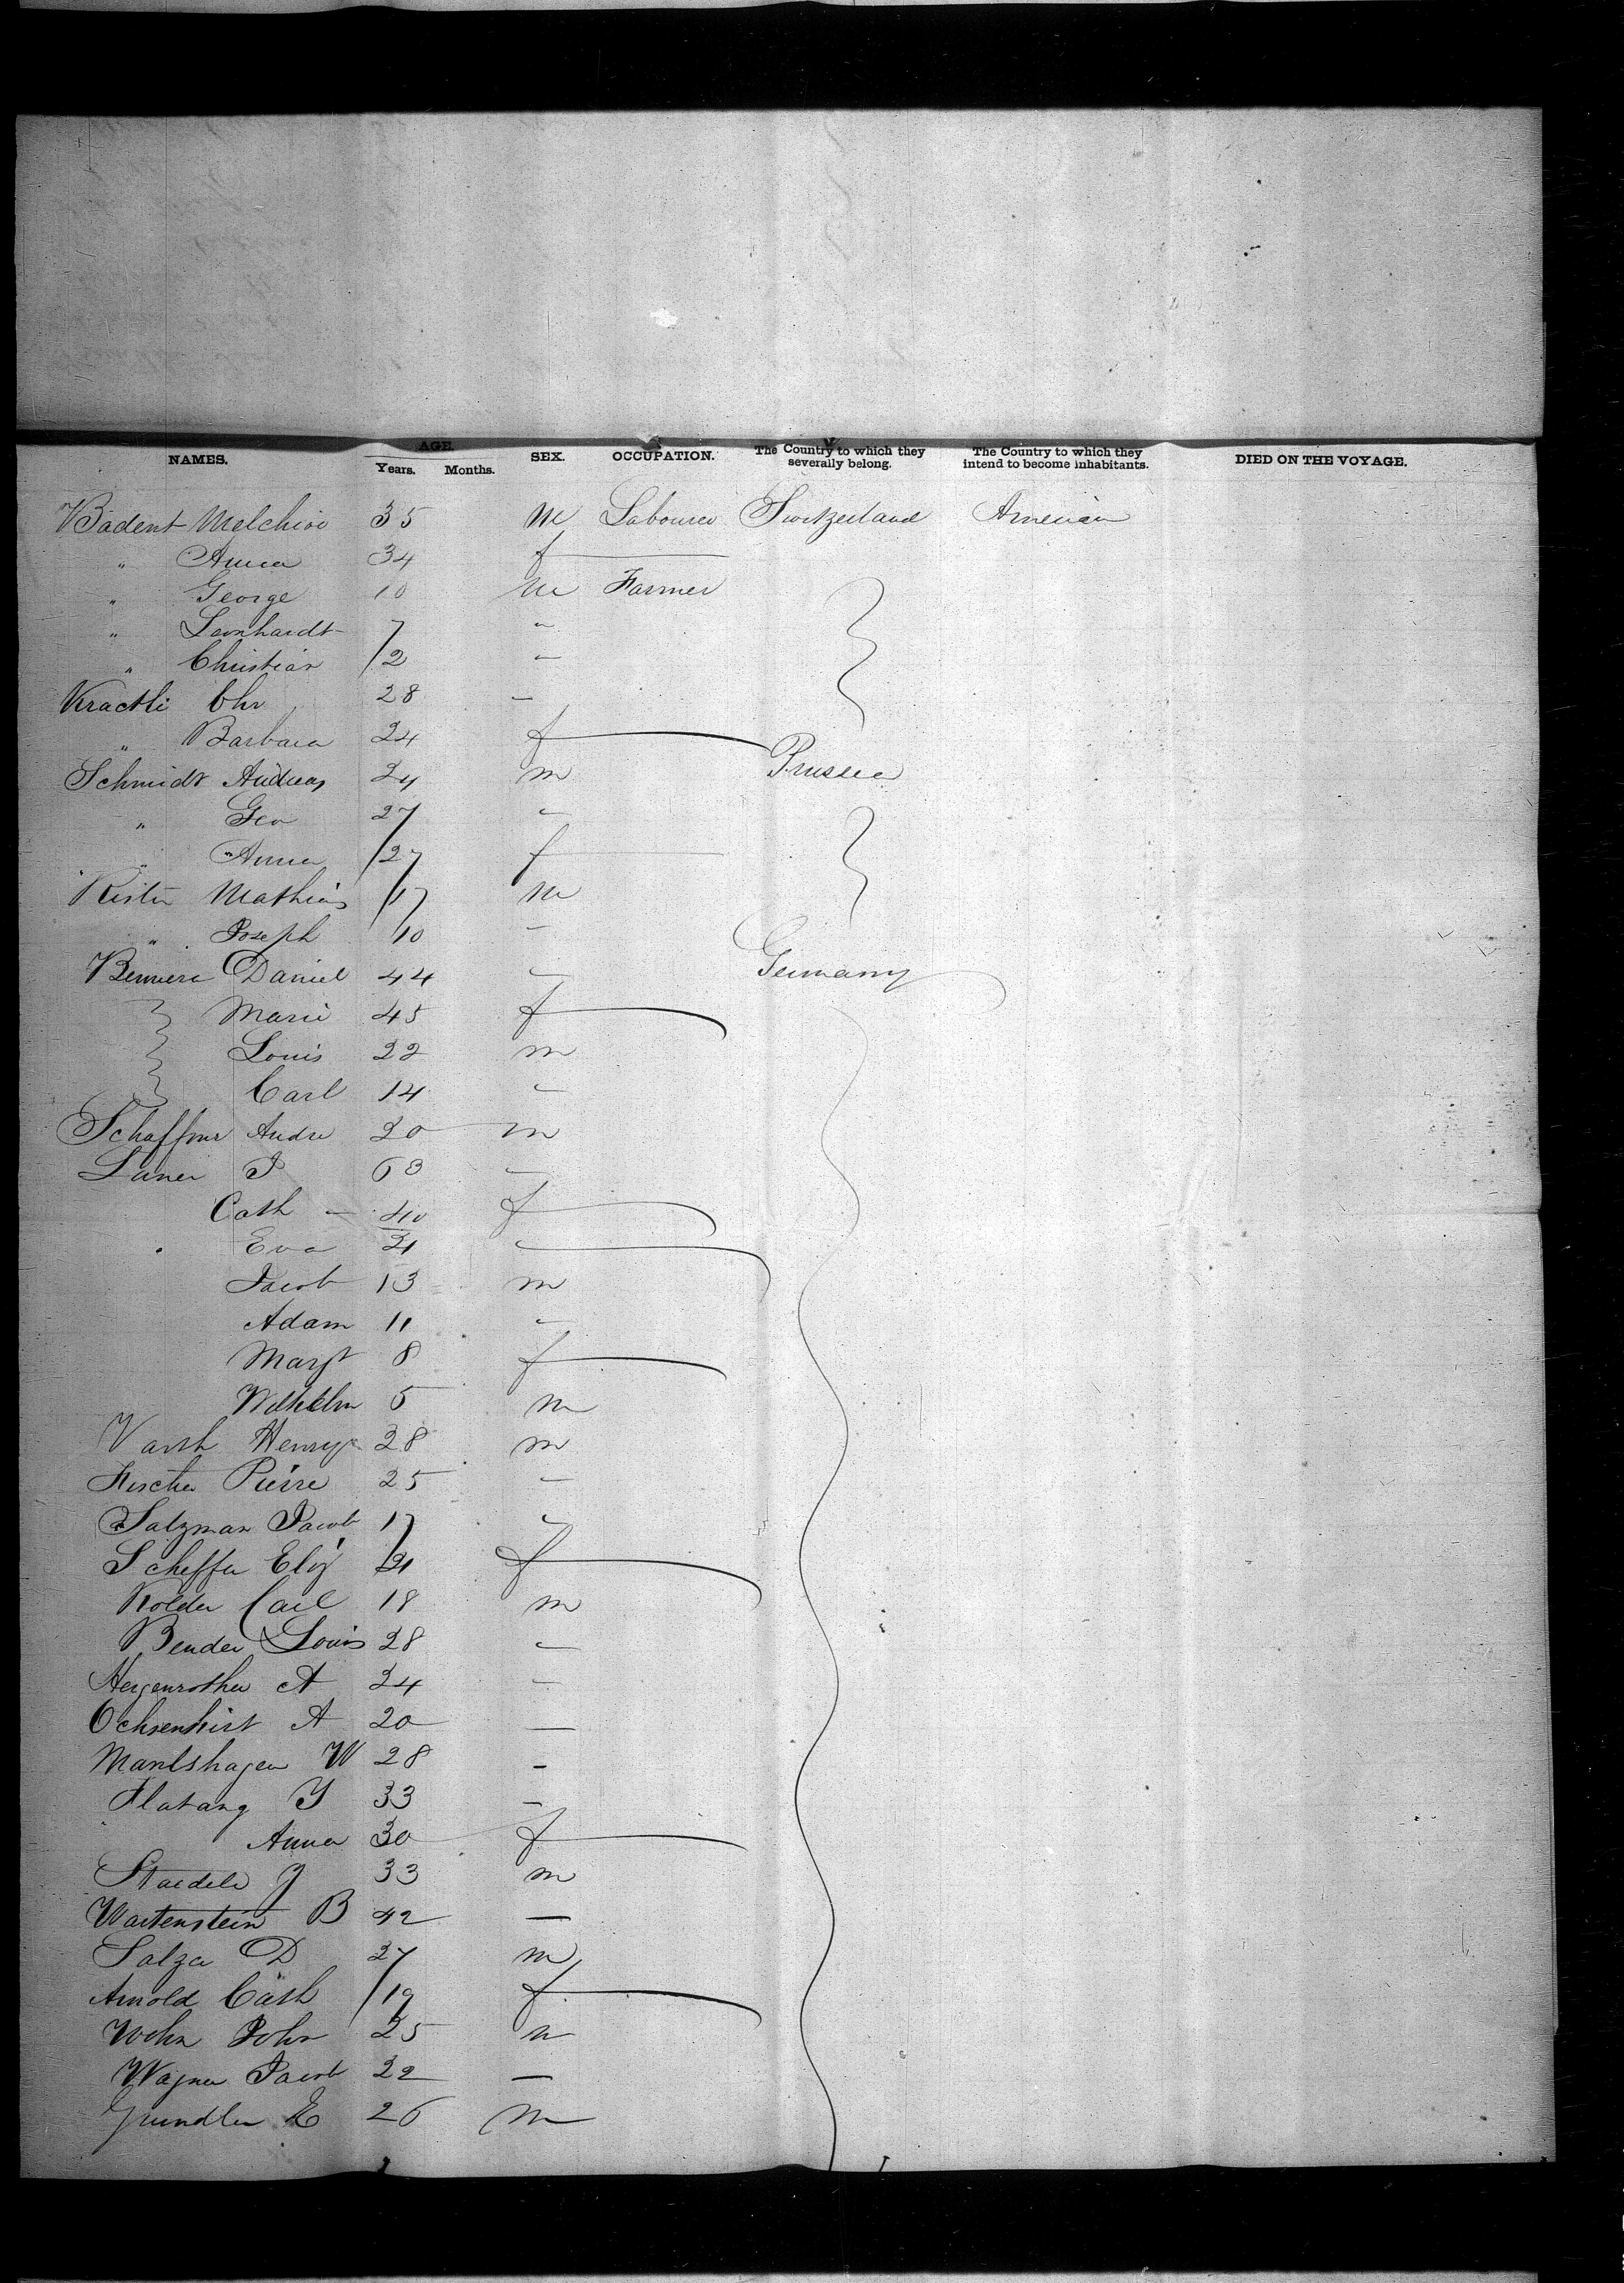 NAMES. AGE. Years. Months. SEX. OCCUPATION. The Country to which they severally belong. The Country to which they intend to become inhabitants. DIED ON THE VOYAGE.
Badent Melchior 35 m Labourer Switzerland American
" Anna 34 f
" George 10 m Farmer
" Leonhardt 7 "
" Christian 2 "
Kraettli Chr 28 "
" Barbara 24 f
Schmidt Andreas 24 m Prussia
" Geo 27 "
" Anna 27 f
Mathias 17 m
" Joseph 10 "
Daniel 44 " Germany
Marie 45 f
Louis 22 m
Carl 14 "
Schaffner Andre 20 m
Lauer J 63 "
Cath 40 f
Eva 21 "
Jacob 13 m
Adam 11 "
Margt 8 f
Wilhelm 5 m
Henry 28 m
Fischer Pierre 25 "
Salzman Jacob 17 "
Scheffer Eliz 21 f
Carl 18 m
Bender Louis 28 "
Hergenrother A 24 "
Ochsenhirt A 20 "
W 28 "
Flatang J 33 "
Anna 30 f
Staedele J 33 m
Wartenstein B 42 "
Salza D 27 m
Arnold Cath 19 f
John 25 m
Wagner Jacob 22 "
Grundler E 26 m